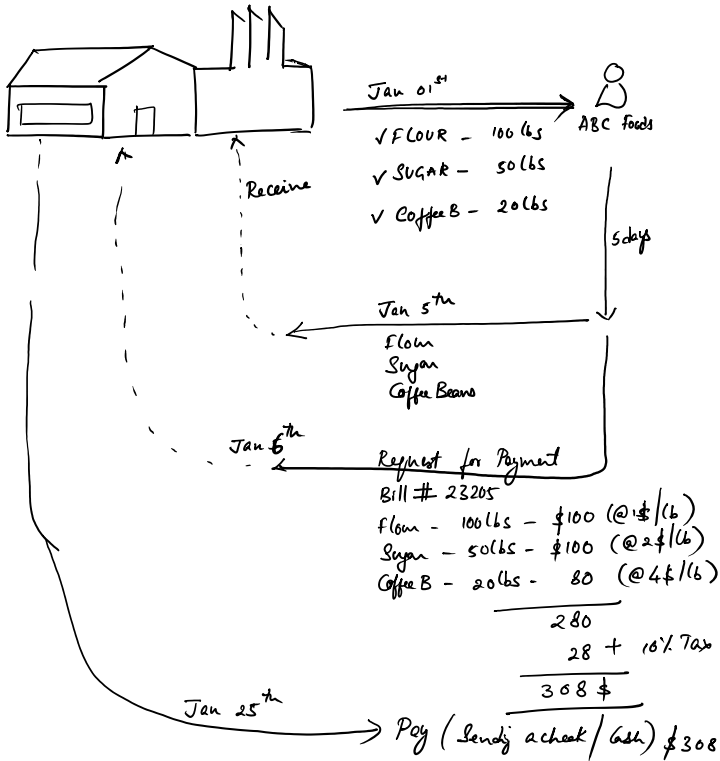 Jan 01st
ABC Foods
✓ FLOUR - 100 lbs
✓ SUGAR - 50 lbs
✓ Coffee B - 20 lbs
Receive
5 days
Jan 5th
Flour
Sugar
Coffee Beans
Jan 6th
Request for Payment
Bill # 23205
Flour - 100 lbs - $100 (@ 1$/lb)
Sugar - 50 lbs - $100 (@ 2$/lb)
Coffee B - 20 lbs - 80 (@ 4$/lb)
280
28 + 10% Tax
308 $
Jan 25th
Pay ( Sendig a check / Cash) $308